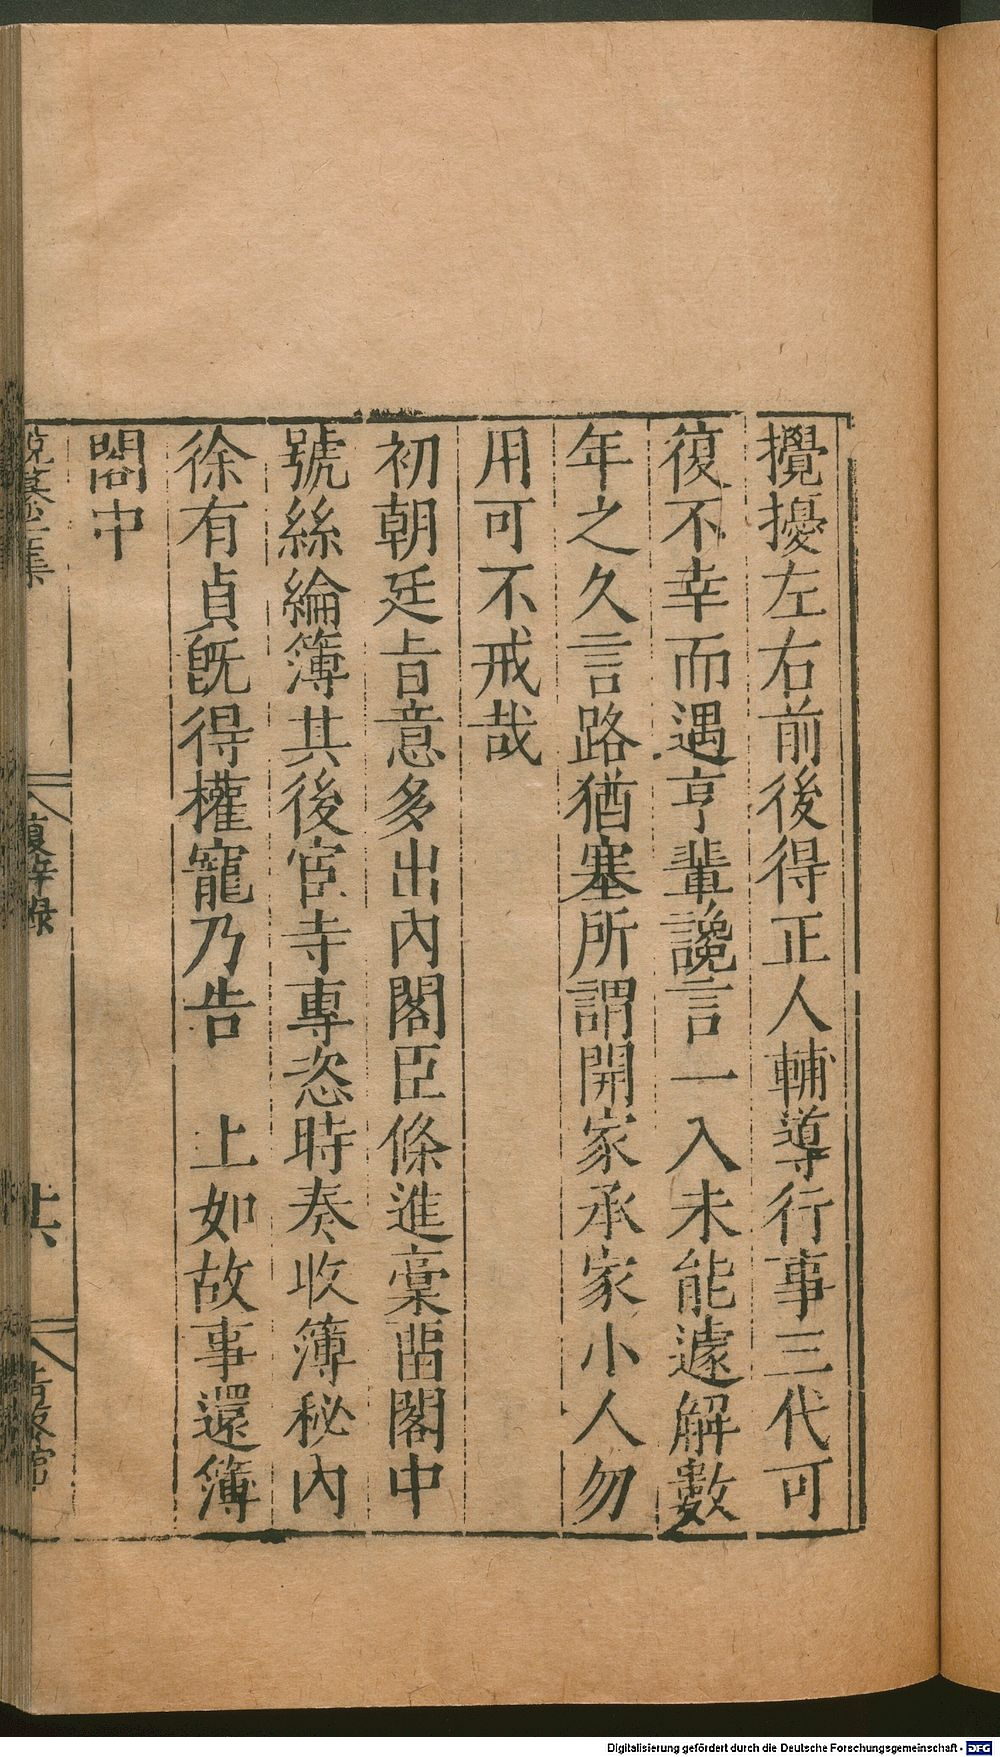 攪擾左右前後得正人輔導行事三代可
復不幸而遇亨輩讒言一入未能遽解數
年之久言路猶塞所謂開家承家小人勿
用可不戒哉
初朝廷旨意多出內閣臣條進稾畱閣中
號絲綸簿其後宦寺專恣時奏收簿秘內
徐有貞旣得權寵乃告　上如故事還簿
閣中
復辟錄
Digitalisierung gefördert durch die Deutsche Forschungsgemeinschaft - DFG